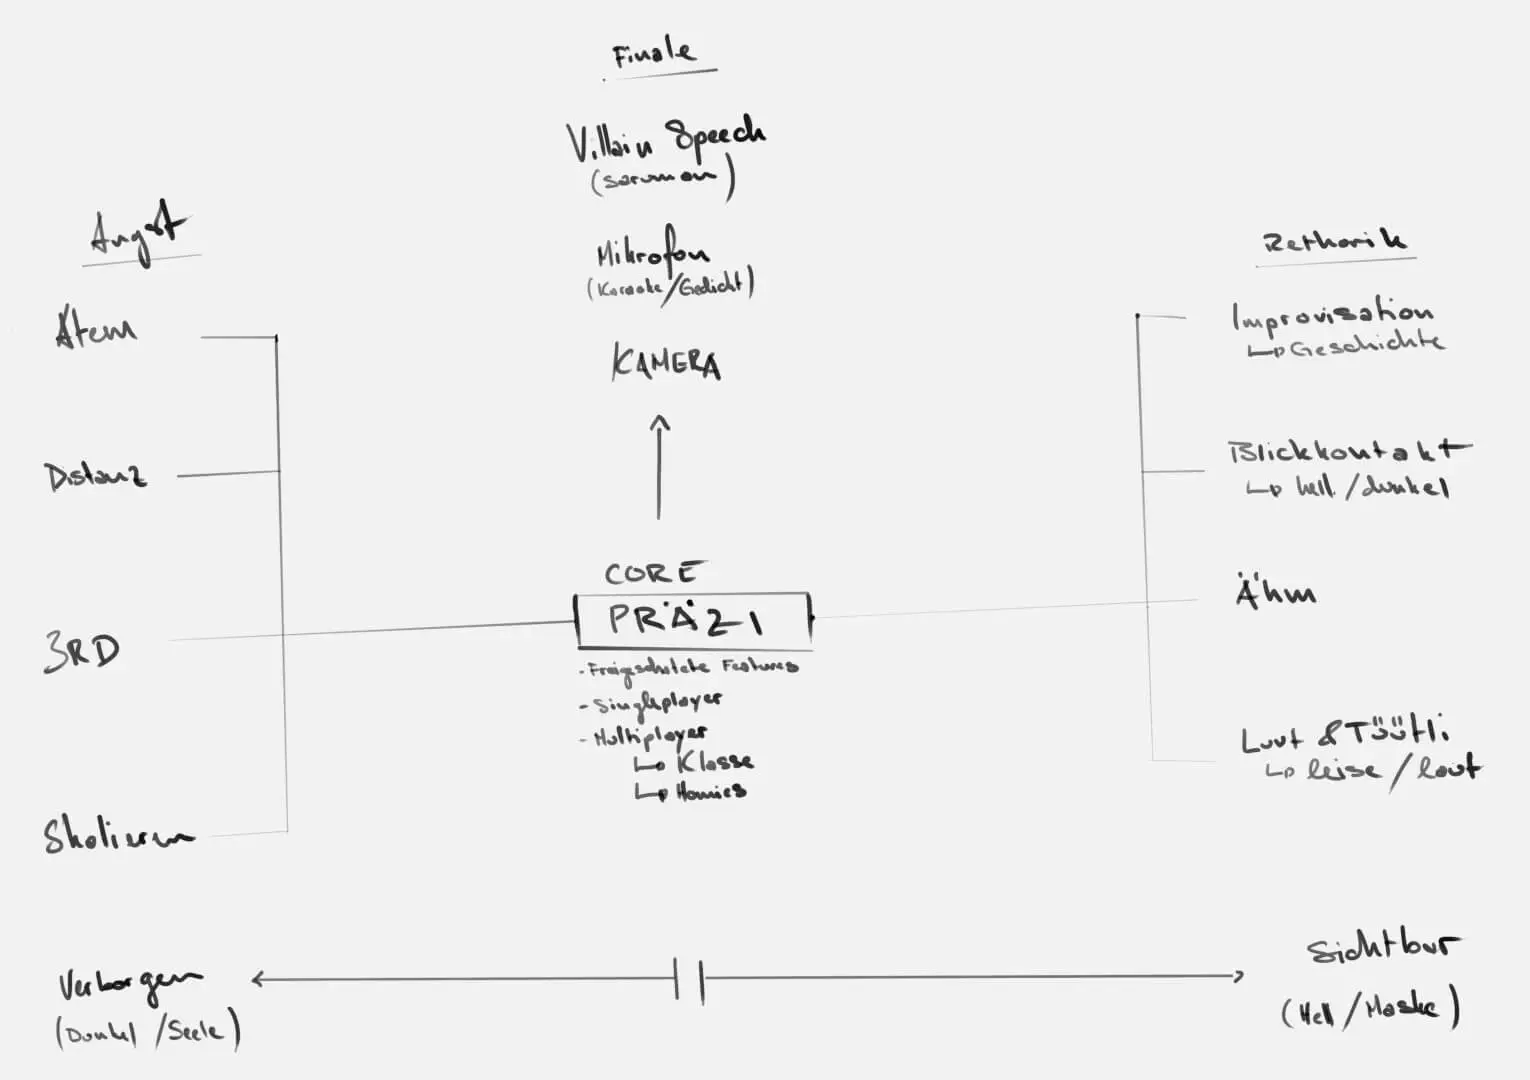 Finale
Villain Speech
(Saruman)
Mikrofon
(Karaoke/Gedicht)
KAMERA
Angst
Atem
Distanz
3RD
Skalieren
CORE
PRÄZI
- Freigeschaltete Features
- Singleplayer
- Multiplayer
Klasse
Homies
Rethorik
Improvisation
Geschichte
Blickkontakt
hell/dunkel
Ähm
Luut & Tüütli
leise/laut
Verborgen
(Dunkel/Seele)
Sichtbar
(Hell/Maske)